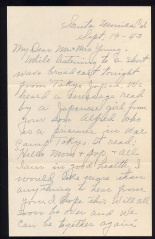 Santa Monica Cal
Sept. 19-43
My Dear Mr & Mrs Young:-
While listening to a short
wave broadcast tonight
from Tokyo Japan. We
heard a message read
by a Japanese girl from
your son Alfred who
is a prisoner in War
camp Tokyo. it read:
Hello Mom & Pop, all
here in good health, I
would like more than
anything to hear from
you. I hope this will all
soon be over and we
can be together again